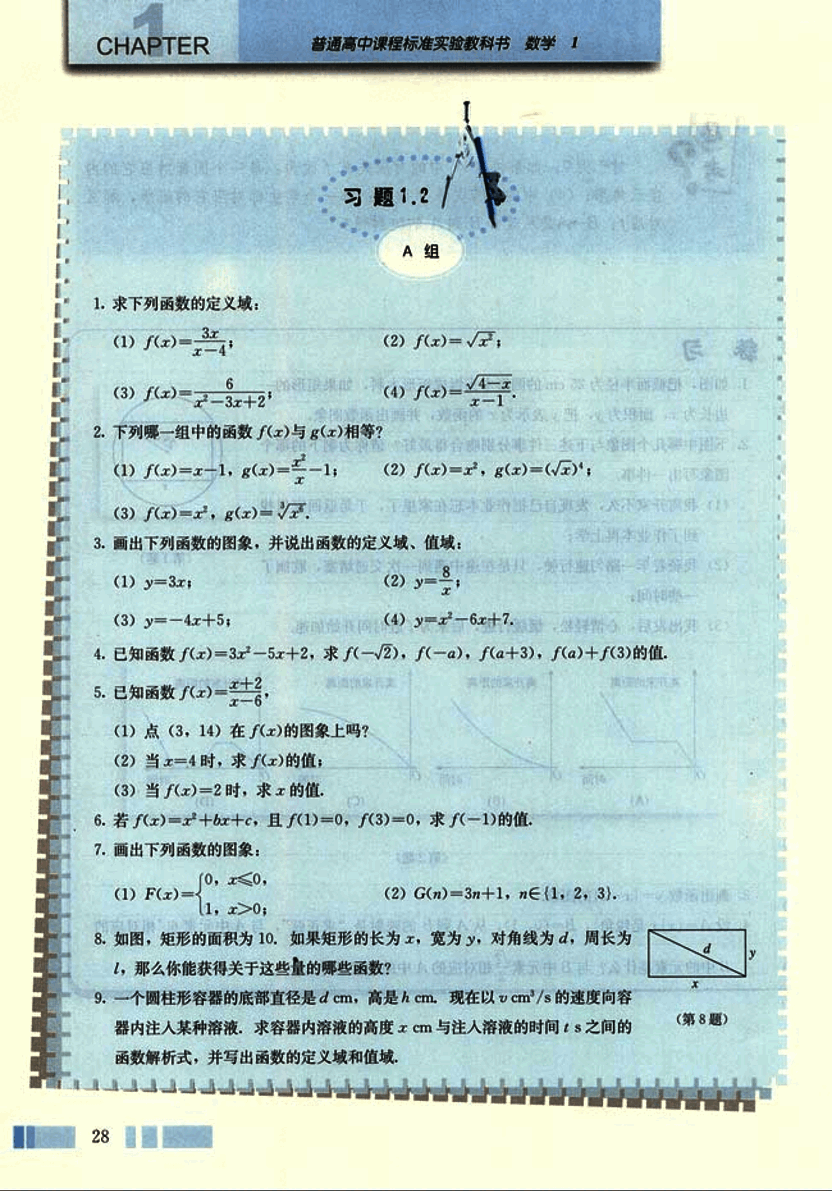 1
CHAPTER
普通高中课程标准实验教科书 数学 1
习题1.2
A 组
1. 求下列函数的定义域:
(1) f(x)=3x/(x-4); (2) f(x)=√x²;
(3) f(x)=6/(x²-3x+2); (4) f(x)=√(4-x)/(x-1).
2. 下列哪一组中的函数 f(x)与 g(x)相等?
(1) f(x)=x-1, g(x)=x²/x-1; (2) f(x)=x², g(x)=(√x)⁴;
(3) f(x)=x², g(x)=∛x⁶.
3. 画出下列函数的图象,并说出函数的定义域、值域:
(1) y=3x; (2) y=8/x;
(3) y=-4x+5; (4) y=x²-6x+7.
4. 已知函数 f(x)=3x²-5x+2,求 f(-√2), f(-a), f(a+3), f(a)+f(3)的值.
5. 已知函数 f(x)=(x+2)/(x-6),
(1) 点 (3, 14) 在 f(x)的图象上吗?
(2) 当 x=4 时,求 f(x)的值;
(3) 当 f(x)=2 时,求 x 的值.
6. 若 f(x)=x²+bx+c,且 f(1)=0, f(3)=0,求 f(-1)的值.
7. 画出下列函数的图象:
(1) F(x)={0, x≤0, 1, x>0; (2) G(n)=3n+1, n∈{1, 2, 3}.
8. 如图,矩形的面积为 10. 如果矩形的长为 x,宽为 y,对角线为 d,周长为
l,那么你能获得关于这些量的哪些函数?
d
y
x
(第 8 题)
9. 一个圆柱形容器的底部直径是 d cm,高是 h cm. 现在以 v cm³/s 的速度向容
器内注入某种溶液. 求容器内溶液的高度 x cm 与注入溶液的时间 t s 之间的
函数解析式,并写出函数的定义域和值域.
28